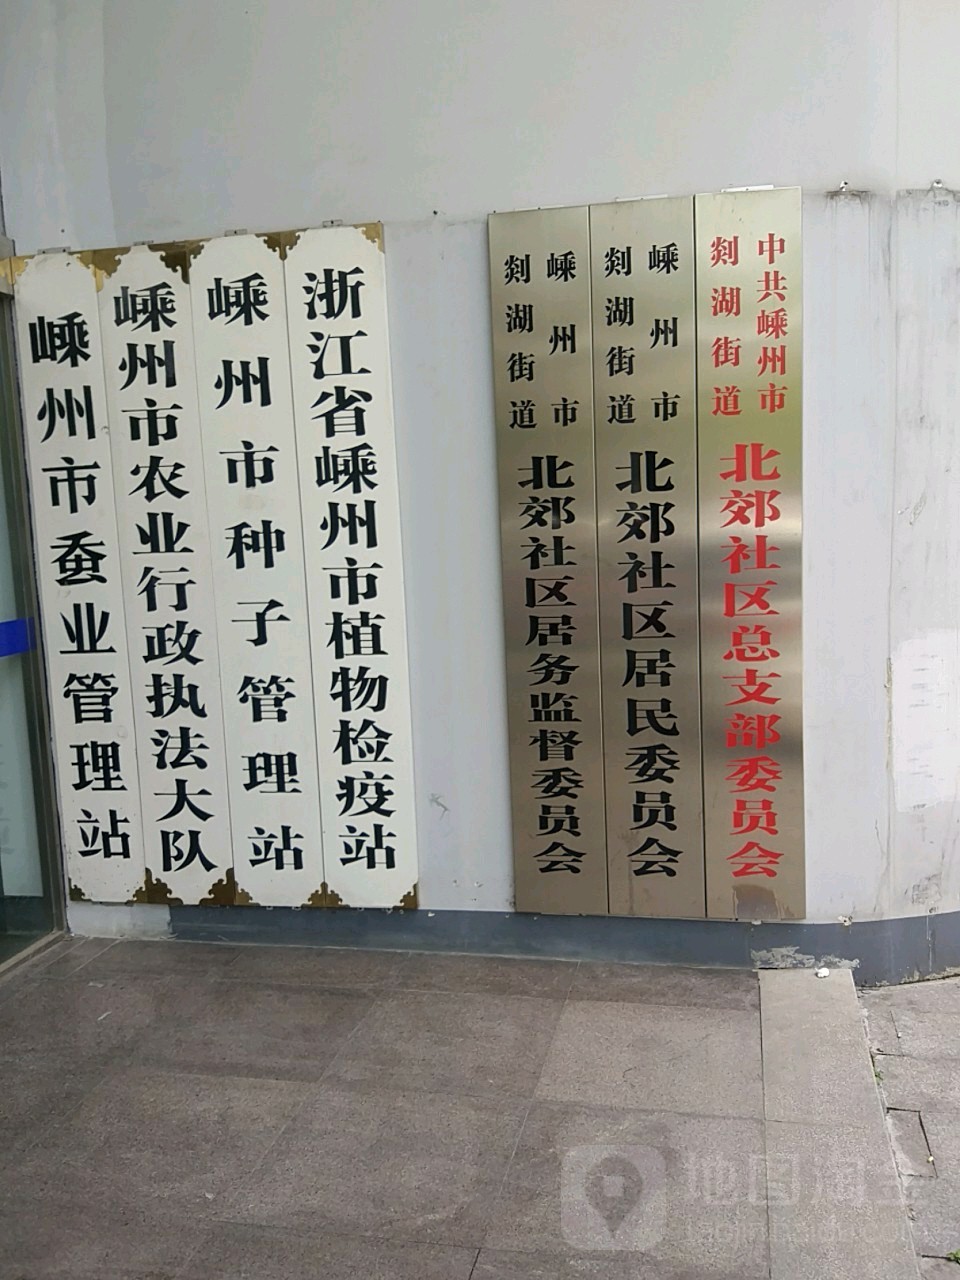 嵊州市蚕业管理站
嵊州市农业行政执法大队
嵊州市种子管理站
浙江省嵊州市植物检疫站
嵊州市
剡湖街道
北郊社区居务监督委员会
嵊州市
剡湖街道
北郊社区居民委员会
中共嵊州市
剡湖街道
北郊社区总支部委员会
地图淘金